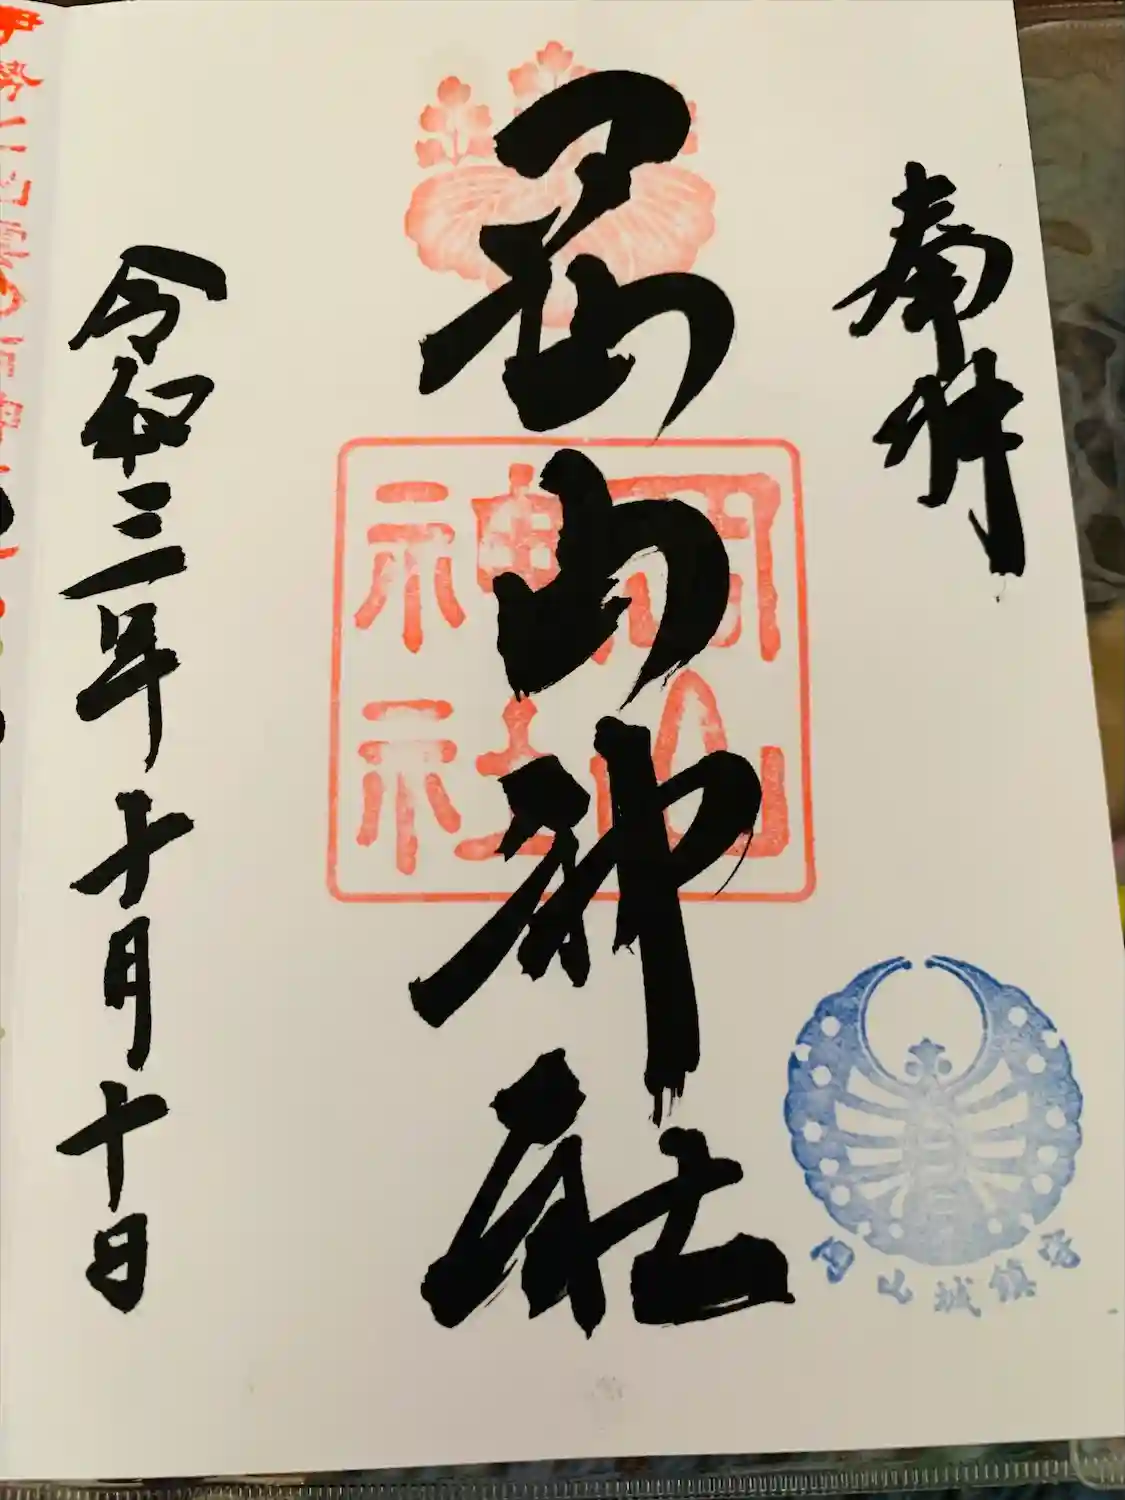 奉拝
岡山神社
岡山
神社
岡山城鎮守
令和三年十月十日